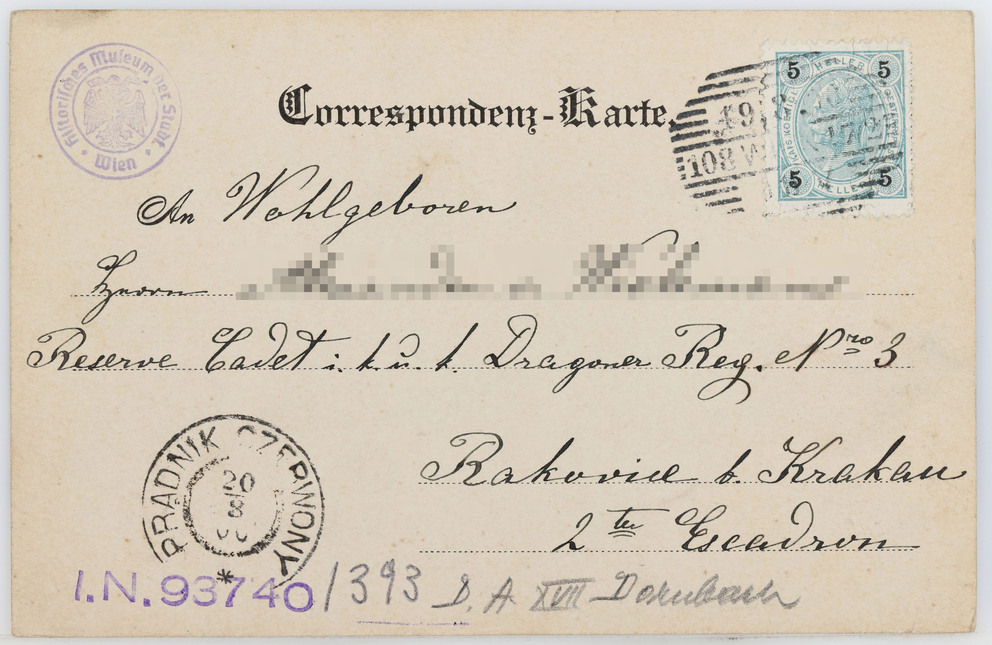 Historisches Museum der Stadt
Wien
Correspondenz-Karte.
5 HELLER 5
5 HELLER 5
108 W
An Wohlgeboren
Herrn
Reserve Cadet i. k. u. k. Dragoner Reg. Nro 3
Rakovice b. Krakau
2ten Escadron
PRĄDNIK CZERWONY
20
8
I.N. 93740 /393 D. A. XVII Dornbach